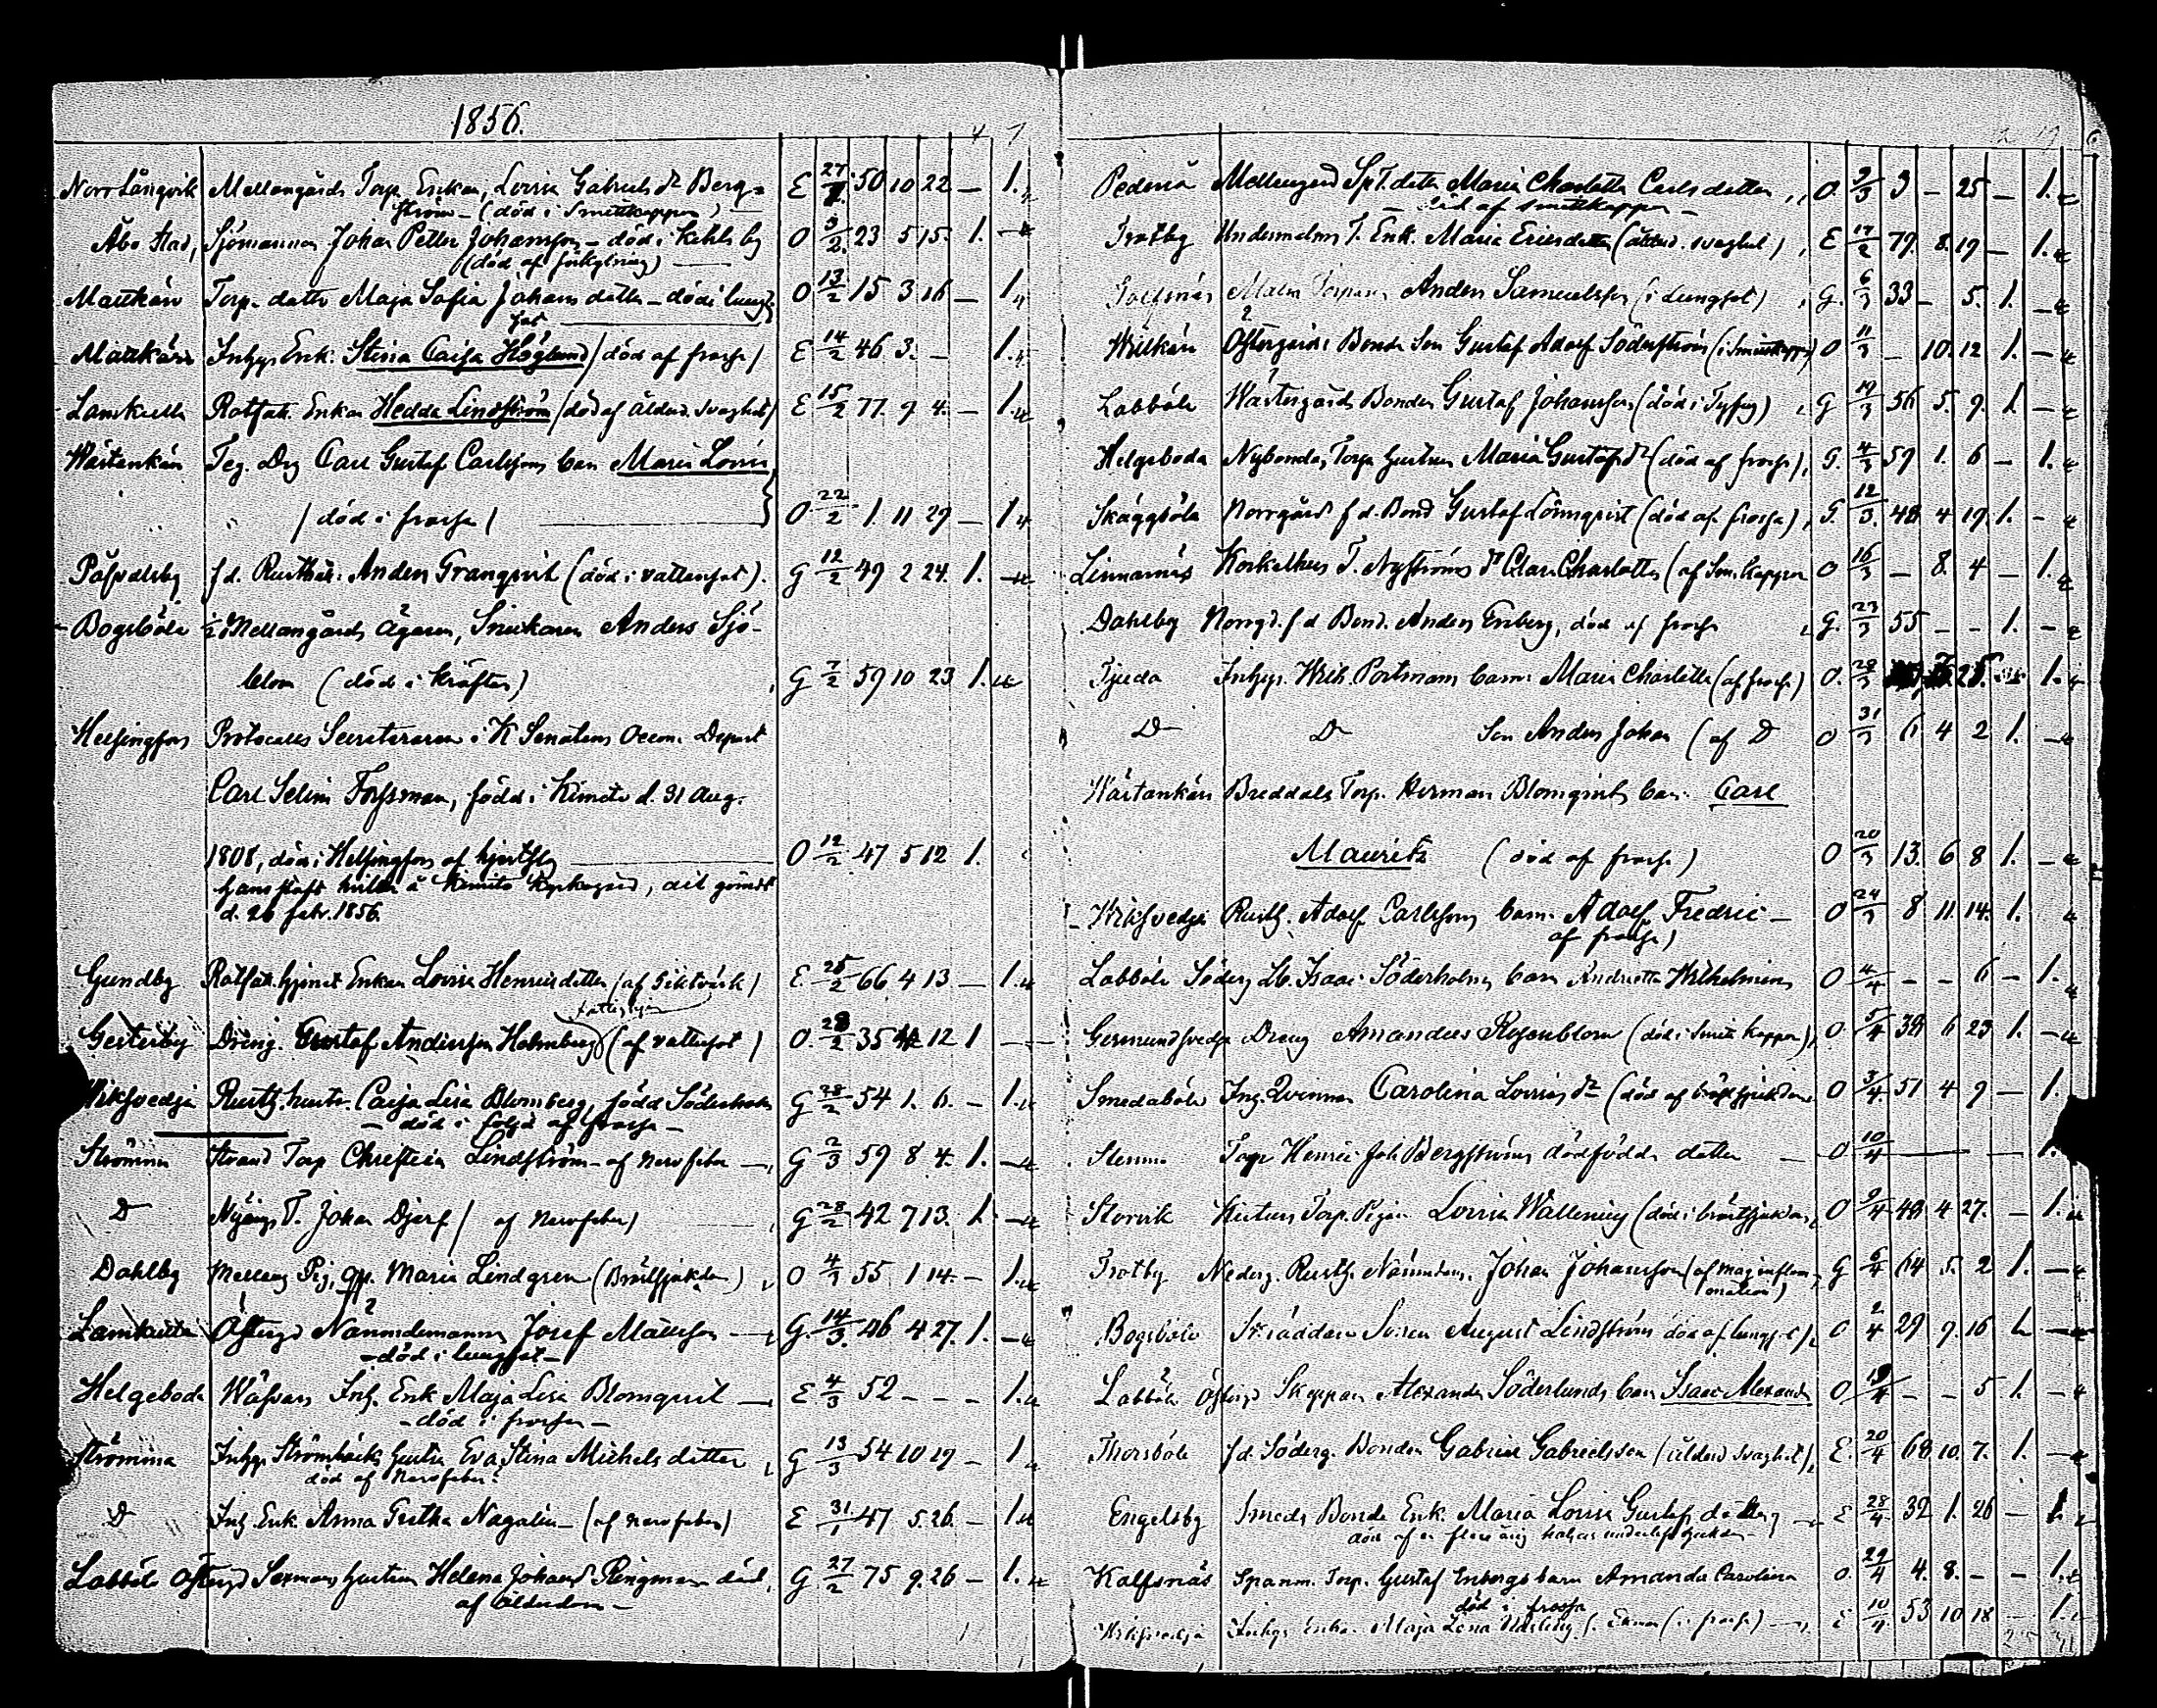 1856.
Norrlångvik Mellangårds Torp Enkan, Lovisa Gabriels dr Berg= E 27/1 50 10 22 — 1.
ström — (död i Smittkoppor) —
Åbo stad, Sjömannen Johan Petter Johansson — död i by O 3/2 23 5 15. 1. —
(död af förkylning) —
Mattkärr Torp. dottr Maja Sofia Johans dotter — död i lung O 13/2 15 3 16 — 1.
sot —
Mattkärr Inhys Enk. Stina Caisa Höglund (död af frossa) E 14/2 46 3. — 1.
Lamkulla Rotfatt. Enkan Hedda Lindström (död af ålderd. svaghet) E 15/2 77. 9 4. — 1.
Wästankärr Teg. Drg Carl Gustaf Carlssons barn Maria Lovisa
" " (död i frossa) — O 22/2 1. 11 29 — 1.
Påsvalsby f d. Rusth. Anders Granqvist (död i vattensot). G 12/2 49 2 24. 1. —
Bogsböle 1/2 Mellangårds Ägaren, Snickaren Anders Sjö-
blom (död i kräftan) G 7/2 59 10 23 1.
Helsingfors Protocolls Secreteraren i K Senatens Oecon. Depart
Carl Selim Forssman, född i Kimito d. 31 Aug.
1808, död i Helsingfors af hjertslag — O 12/2 47 5 12 1.
hans stoft hvilar å Kimito Kyrkogård, dit
d. 26 febr. 1856.
Gundby Rotfatt. hjonet Enkan Lovisa Henricsdotter (af Giktvärk) E. 25/2 66 4 13. — 1.
Gesterby Dräng. Gustaf Andersson Holmberg (af vattusot) O 28/2 35 12 1 —
Wiksvedja Rusth. hustr. Caisa Lisa Blomberg, född Söderholm G 28/2 54 1. 6. — 1.
— död i följd af frossa —
Strömma Strand Torp Christian Lindström — af nervfeber — G 2/3 59 8 4. 1. —
D Nyängs T. Johan Djerf (af nervfeber) G 28/2 42 7 13. 1. —
Dahlby Mellang Pig. Maria Lindgren (Bröstsjukdom) O 4/3 55 1 14 — 1.
Lamkulla Östergd Nämndemannen Josef Mattsson — G. 14/3 46 4 27. 1. —
— död i lungsot —
Helgeboda Wäfvars Inh. Enk Maja Lisa Blomqvist — E 4/3 52 — — — 1.
— död i frossa —
Strömma Inhys Strömbäcks hustru Eva Stina Michelsdotter G 13/3 54 10 19 — 1
död af nervfeber
D Inh. Enk. Anna Greta Nagalin — (af nervfeber) E 31/1 47 5. 26. — 1
Labböle Östergd Sexmans hustrun Helena Johansd Ringman död G. 27/2 75 9. 26 — 1.
af ålderdom —
Pederså Mellangård Spt. dotter Maria Charlotta Carlsdotter O. 2/3 3 — 25 — 1.
— död af smittkoppor —
Trotby Undermalms T. Enk. Maria Ericsdotter (ålderd. svaghet) E 17/2 79. 8. 19 — 1.
Kalfsnäs Malm Torparen Anders Samuelsson (i lungsot) G. 6/3 33 — 5. 1. —
Wilkärr Östergårds Bonde Son Gustaf Adolf Söderström (i Smittkoppor) O 11/3 — 10. 12 1. —
Labböle Wästergårds Bonden Gustaf Johansson (död i Tyfus) G 19/3 56 5. 9. 1. —
Helgeboda Nybondas Torp hustrun Maria Gustafs dr (död af frossa) G. 4/3 59 1. 6 — 1.
Skäggböle Norrgård f d. Bond Gustaf Lönnqvist (död af frossa) G. 12/3. 48 4 19. 1. —
Linnarnäs Korkelhus T. Nyströms dr Clara Charlotta (af Sm. koppor O 16/3 — 8. 4 — 1.
Dahlby Norrgd. f d Bond. Anders Enberg, död af frossa G. 23/3 55 — — 1. —
Tjuda Inhys. Wilh. Portmans barn Maria Charlotta (af frossa) O. 28/3 25. — 1.
D D Son Anders Johan (af D O 31/3 6 4 2 1. —
Wästankärr Breddals Torp. Herman Blomqvists barn Carl
Mauritz (död af frossa) O 20/3 13. 6 8 1. —
Wiksvedja Rusth. Adolf Carlssons barn Adolf Fredric — O 24/3 8 11. 14. 1.
af frossa)
Labböle Söderg Lb. Isaac Söderholms barn Andrietta Wilhelmina O 4/4 — — 6 — 1.
Germundsvedja Dreng Amandus Rosenblom (död i Smittkoppor) O 5/4 38 6 23 1. —
Smedaböle Inh. Qvinnan Carolina Lovisa dr (död af bröstsjukdom O 3/4 51 4 9 — 1.
Stenmo Torp Henric Joh Bergströms dödfödda dotter — O 10/4 — — 1.
Storvik Torp. Pigan Lovisa Wallenius (död i bröstsjukdom O 9/4 48 4 27. — 1.
Trotby Nederg. Rusth. Nämndem. Johan Johansson (af maginflam G 6/4 64 5. 2 1. —
mation)
Bogsböle Skräddare Sonen August Lindström död af lungsot) O 2/4 29 9. 16 1. —
Labböle Östergd Skepparn Alexander Söderlunds barn Isaac Alexander O 19/4 — — 5 1. —
Thorsböle f d. Söderg. Bonden Gabriel Gabrielsson (ålderd svaghet) E. 20/4 68 10. 7. 1. —
Engelsby Smeds Bonde Enk. Maria Lovisa Gustafs dotter — E 28/4 32 1. 26 — 1.
död af en flere årig
Kalfsnäs Spanm. Torp. Gustaf Enbergs barn Amanda Carolina O. 29/4 4. 8. — — 1.
död i frossa
Wiksvedja Inhys Enka. Maja Lena (i frossa) — E 10/4 53 10 18 — 1.